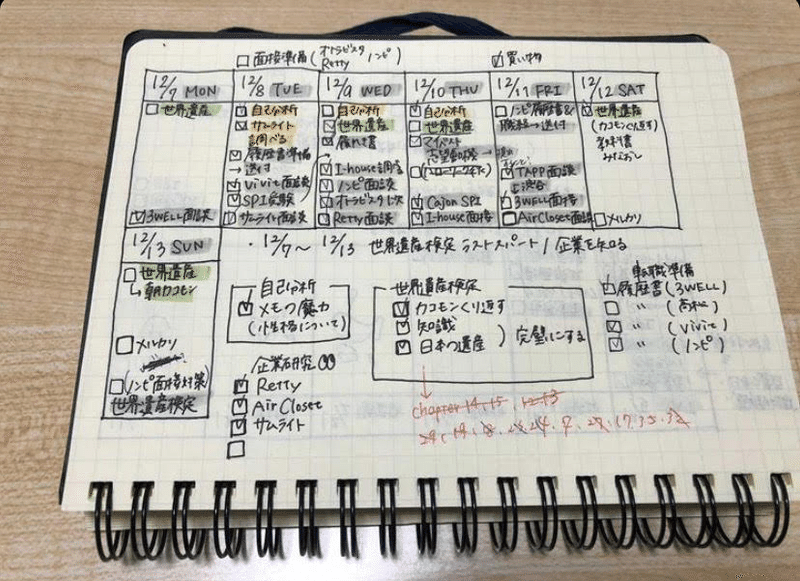 面接準備(オトラビスタ ノンピ)
Retty
買い物
12/7 MON
世界遺産
3WELL面談
12/8 TUE
自己分析
サムライト
調べる
履歴書準備
→送付
Vivit面談
SPI受験
サムライト面談
12/9 WED
自己分析
世界遺産
履歴書
I-house調査
ノンピ面談
Retty面談
12/10 THU
自己分析
世界遺産
マイベスト
志望動機
Cajon SPI
I-house面接
12/11 FRI
ノンピ履歴書&
送付
TAPP面談
渋谷
3WELL面接
AirCloset面談
12/12 SAT
世界遺産
(カコモンくり返す
教科書
みなおし
メルカリ
12/13 SUN
世界遺産
↳朝カコモン
メルカリ
(ノンピ面接対策)
世界遺産検定
・12/7〜12/13 世界遺産検定ラストスパート/企業を知る
自己分析
メモの魔力
(小生格について)
企業研究
Retty
AirCloset
サムライト
世界遺産検定
カコモンくり返す
知識
日本の遺産
)完璧にする
chapter 14.15.12.13
転職準備
履歴書(3WELL)
〃(高松)
〃(Vivit)
〃(ノンピ)